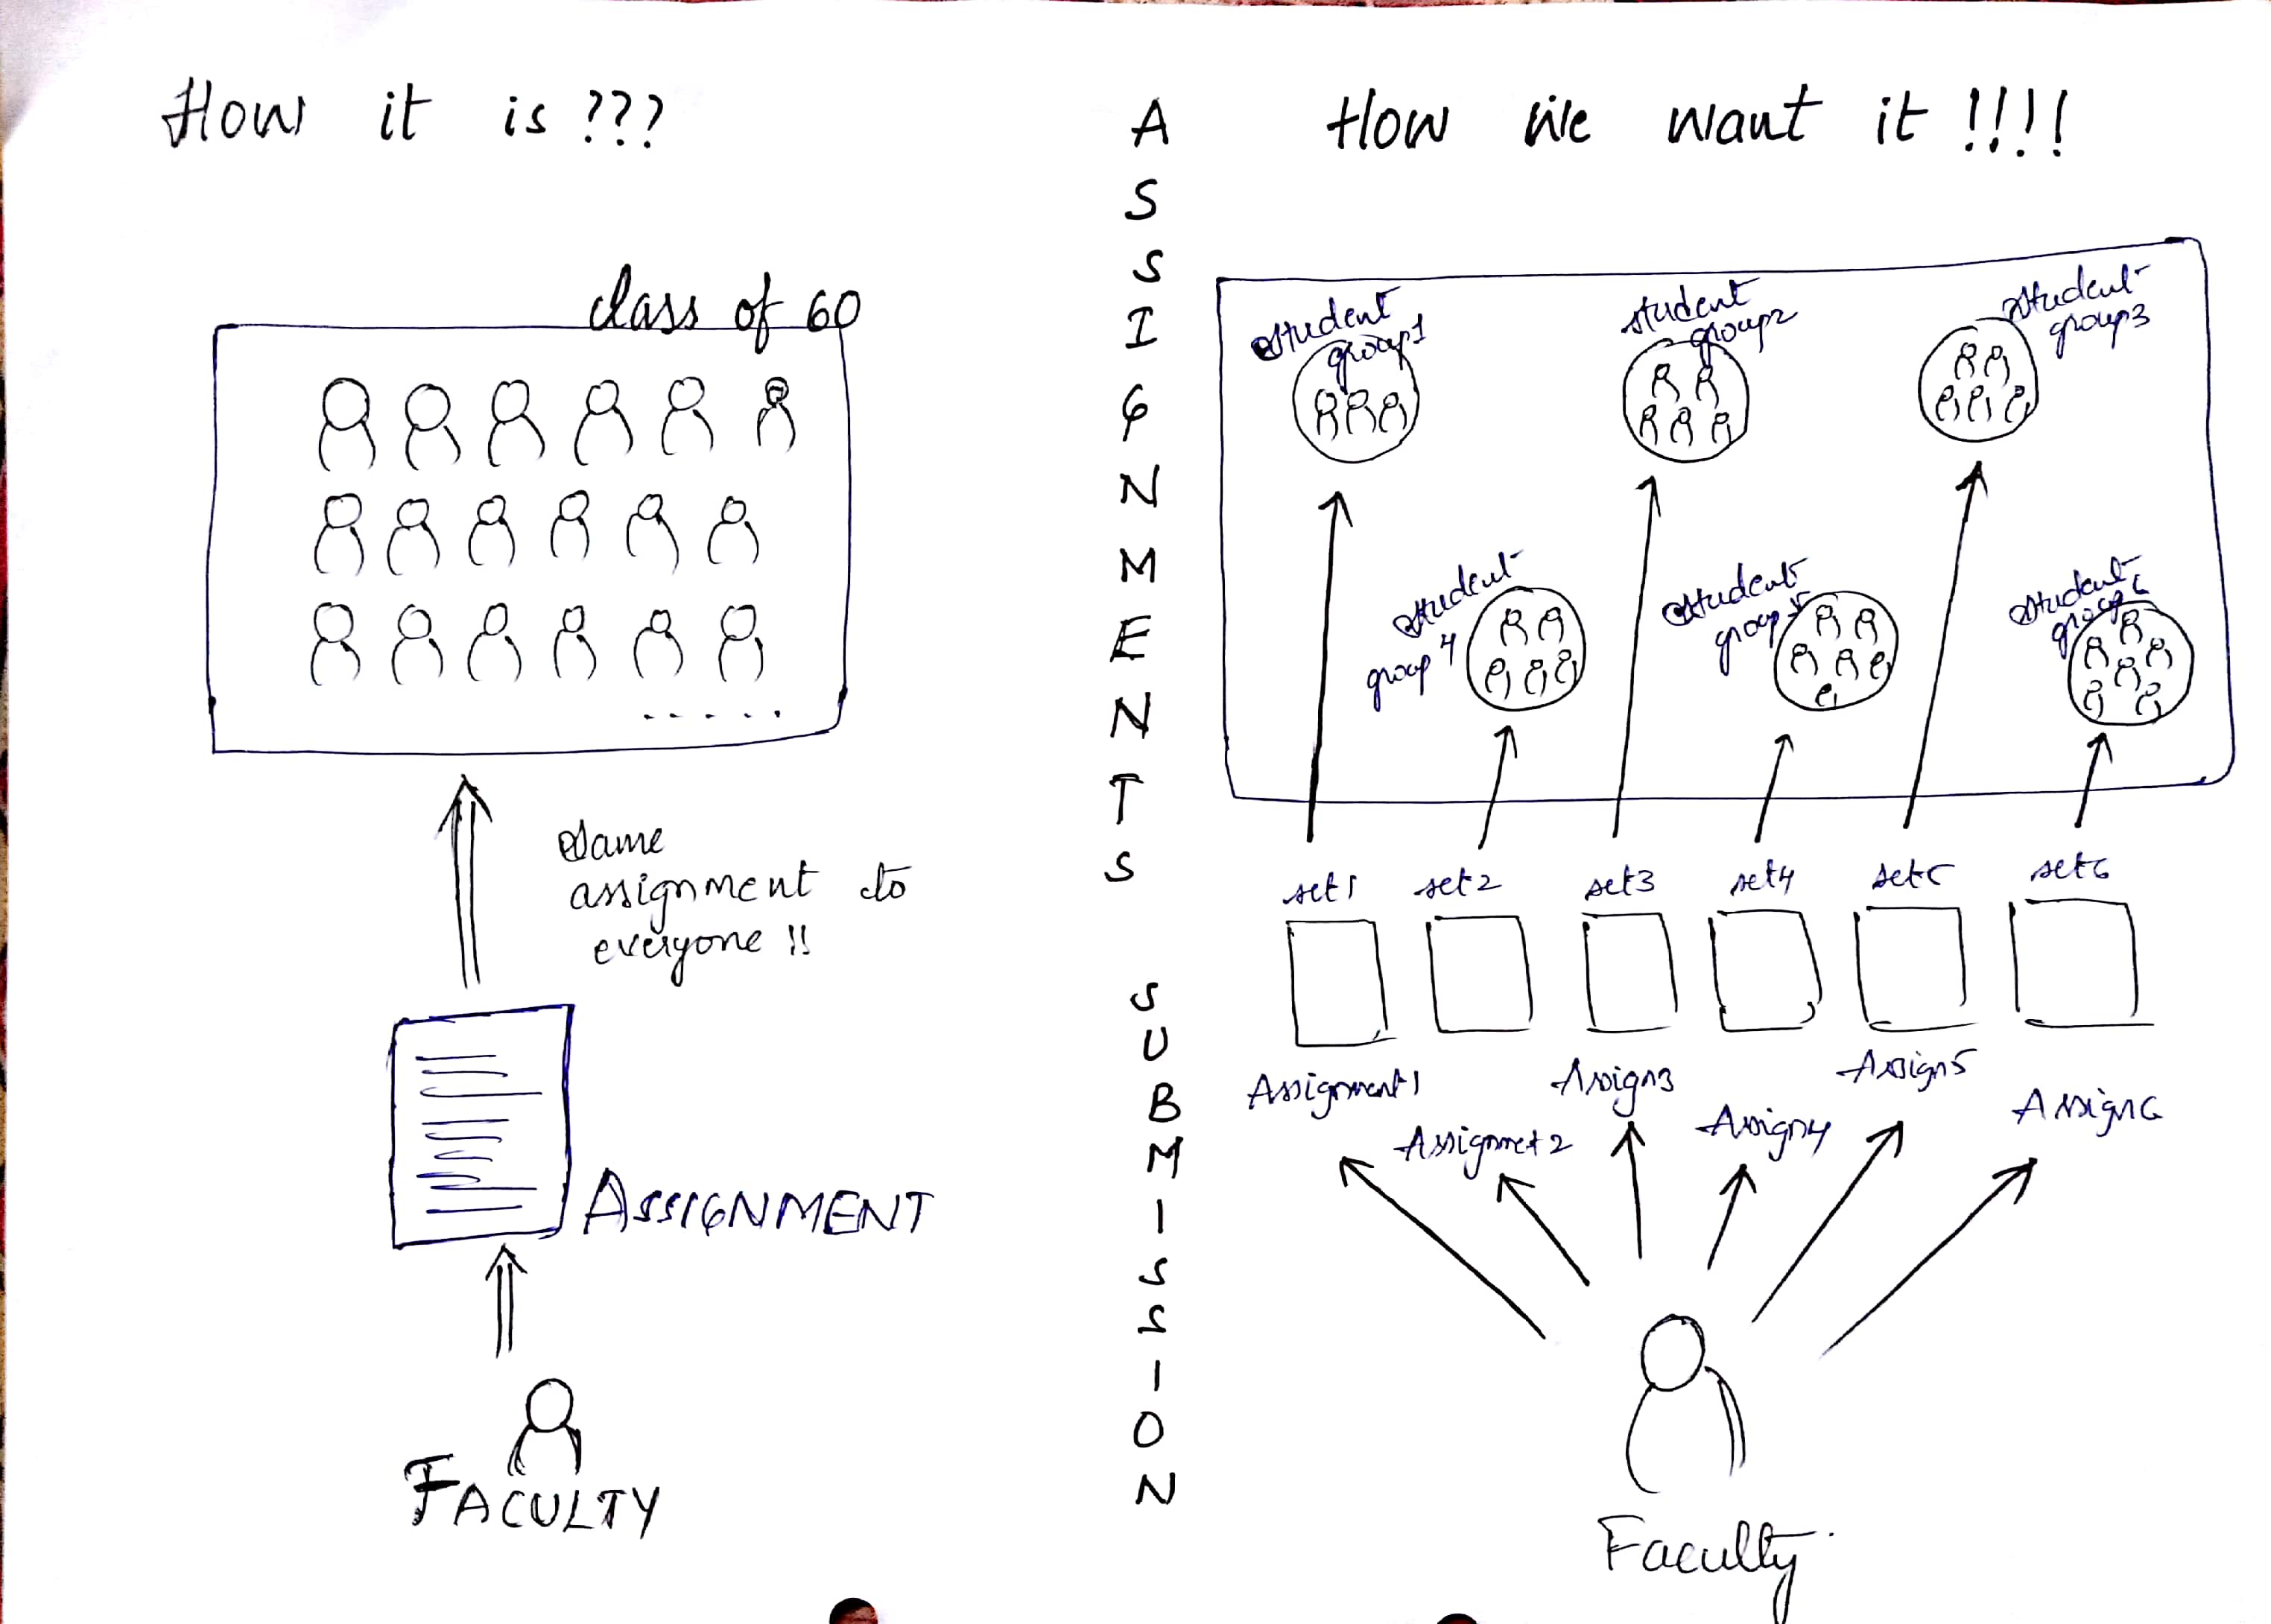 How it is ???
class of 60
Same
assignment to
everyone !!
ASSIGNMENT
FACULTY
ASSIGNMENTS
SUBMISSION
How We want it !!!!
Student
group1
student
group2
Student
group3
Student
group 4
Student
group 5
Student
group 6
set 1
set 2
set3
set4
set5
set6
Assignment 1
Assignmet 2
Assign3
Assign4
Assign5
Assign6
Faculty